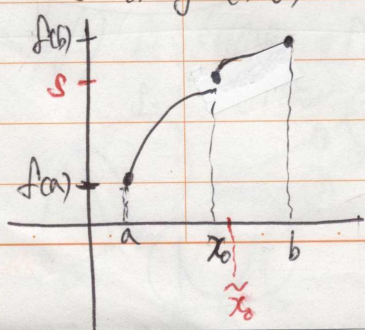 f(b)
S
f(a)
a
x₀
b
x̃₀